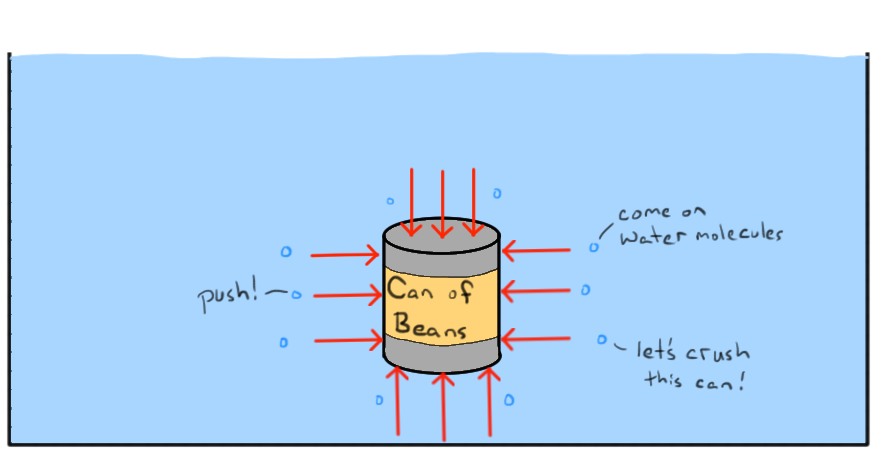 come on
water molecules
push!
Can of
Beans
let's crush
this can!